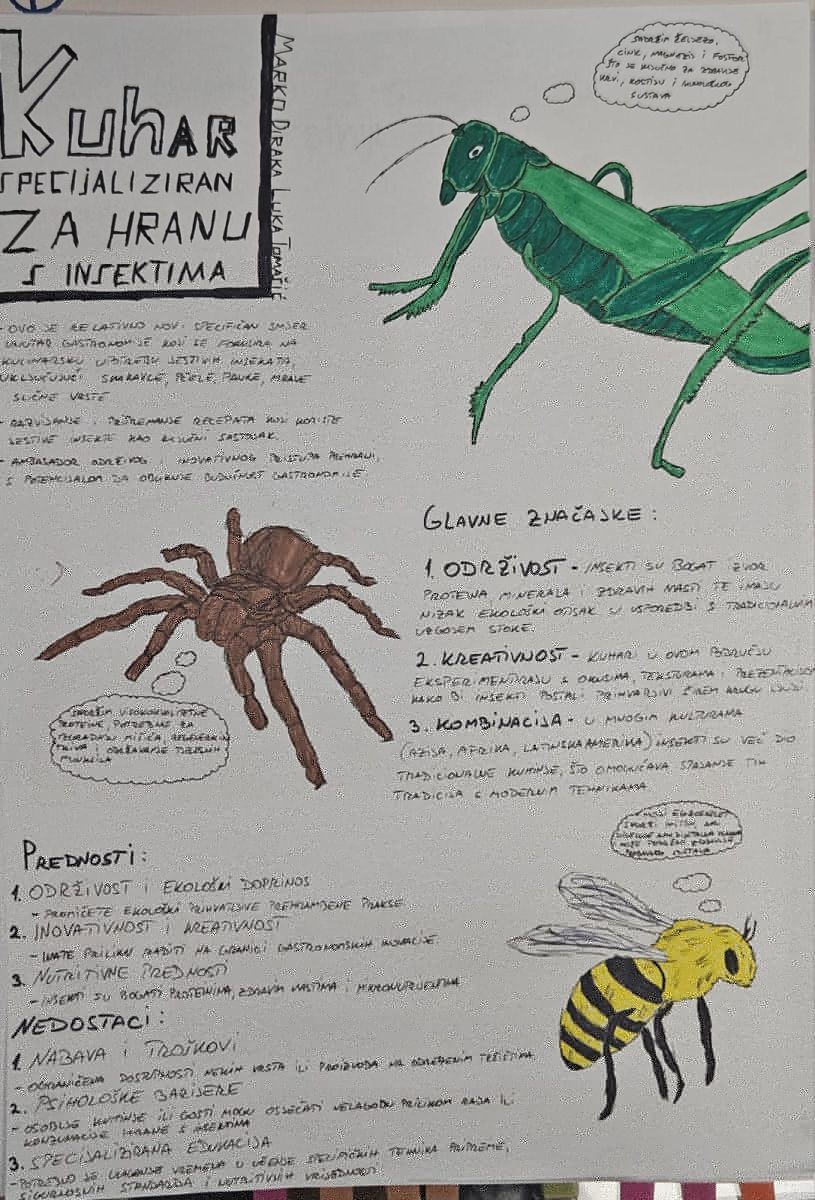 Kuhar
SPECIJALIZIRAN
ZA HRANU
S INSEKTIMA
MARKO DIRAKA LUKA TOMAČIĆ
SADRŽIM ŽELJEZO,
CINK, MAGNEZIJ I FOSFOR
ŠTO JE KLJUČNO ZA ZDRAVLJE
KRVI, KOSTIJU I IMUNOLOŠKOG
SUSTAVA
- OVO JE RELATIVNO NOVI SPECIFIČAN SMJER
UNUTAR GASTRONOMIJE KOJI SE FOKUSIRA NA
KULINARSKU UPOTREBU JESTIVIH INSEKATA,
UKLJUČUJUĆI SKAKAVCE, PČELE, PAUKE, MRAVE
SLIČNE VRSTE
- RAZVIJANJE I PRIPREMANJE RECEPATA KOJI KORISTE
JESTIVE INSEKTE KAO KLJUČNI SASTOJAK.
- AMBASADOR ODRŽIVOG I INOVATIVNOG PRISTUPA PREHRANI,
S POTENCIJALOM DA OBLIKUJE BUDUĆNOST GASTRONOMIJE
GLAVNE ZNAČAJKE:
1. ODRŽIVOST - INSEKTI SU BOGAT IZVOR
PROTEINA, MINERALA I ZDRAVIH MASTI TE IMAJU
NIZAK EKOLOŠKI OTISAK U USPOREDBI S TRADICIONALNIM
UZGOJEM STOKE.
2. KREATIVNOST - KUHARI U OVOM PODRUČJU
EKSPERIMENTIRAJU S OKUSIMA, TEKSTURAMA I PREZENTACIJOM
KAKO BI INSEKTI POSTALI PRIHVATLJIVI ŠIREM KRUGU LJUDI.
3. KOMBINACIJA - U MNOGIM KULTURAMA
(AZIJA, AFRIKA, LATINSKA AMERIKA) INSEKTI SU VEĆ DIO
TRADICIONALNE KUHINJE, ŠTO OMOGUĆAVA SPAJANJE TIH
TRADICIJA S MODERNIM TEHNIKAMA
SADRŽIM VISOKOKVALITETNE
PROTEINE, POTREBNE ZA
IZGRADNJU MIŠIĆA, REGENERACIJU
TKIVA I ODRŽAVANJE TJELESNIH
FUNKCIJA
SADRŽI
PREDNOSTI:
1. ODRŽIVOST I EKOLOŠKI DOPRINOS
- PROMIČETE EKOLOŠKI PRIHVATLJIVE PREHRAMBENE PRAKSE
2. INOVATIVNOST I KREATIVNOST
- IMATE PRILIKU RADITI NA GRANICI GASTRONOMSKIH INOVACIJE.
3. NUTRITIVNE PREDNOSTI
- INSEKTI SU BOGATI PROTEINIMA, ZDRAVIM MASTIMA I MIKRONUTRIJENTIMA
NEDOSTACI:
1. NABAVA I TROŠKOVI
- OGRANIČENA DOSTUPNOSTI NEKIH VRSTA ILI PROIZVODA NA ODREĐENIM TRŽIŠTIMA.
2. PSIHOLOŠKE BARIJERE
- OSOBLJE KUHINJE ILI GOSTI MOGU OSJEĆATI NELAGODU PRILIKOM RADA ILI
KONZUMACIJE HRANE S INSEKTIMA
3. SPECIJALIZIRANA EDUKACIJA
- POTREBNO JE ULAGANJE VREMENA U UČENJE SPECIFIČNIH TEHNIKA PRIPREME,
SIGURNOSNIH STANDARDA I NUTRITIVNIH VRIJEDNOSTI